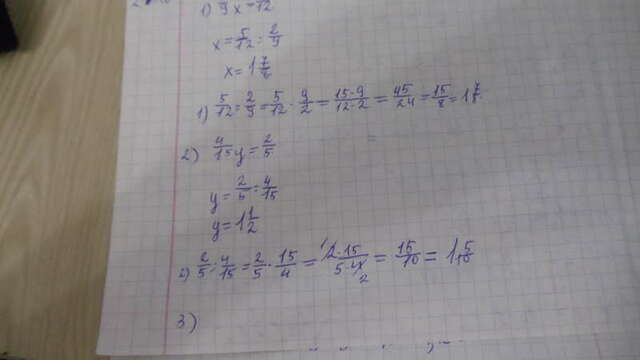 1) 2/9 x = 5/12
x = 5/12 : 2/9
x = 1 7/8
1) 5/12 : 2/9 = 5/12 · 9/2 = 15·9/12·2 = 45/24 = 15/8 = 1 7/8
2) 4/15 y = 2/5
y = 2/5 : 4/15
y = 1 1/2
2) 2/5 : 4/15 = 2/5 · 15/4 = 2·15/5·4 = 15/10 = 1 5/10
3)